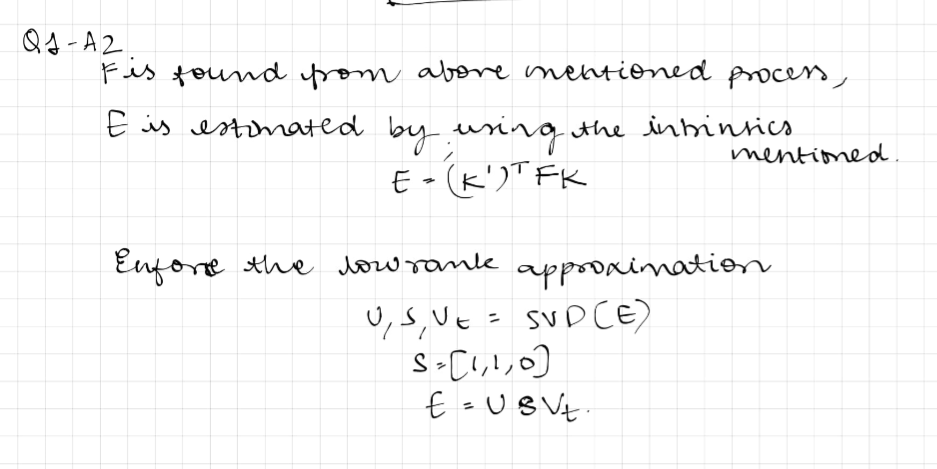 Q1-A2
F is found from above mentioned process,
E is estimated by using the intrinsics
mentioned.
E = (K')ᵀ FK
Enfore the lowrank approximation
U, S, Vt = SVD(E)
S = [1,1,0]
E = U S Vt.